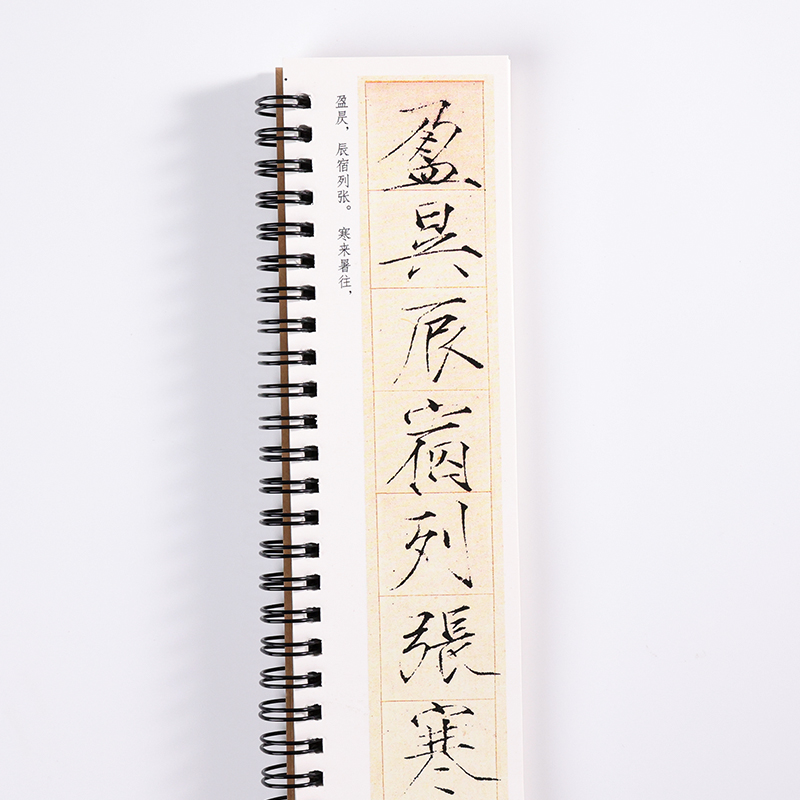 盈昃，辰宿列张。寒来暑往，
盈昃辰宿列張寒